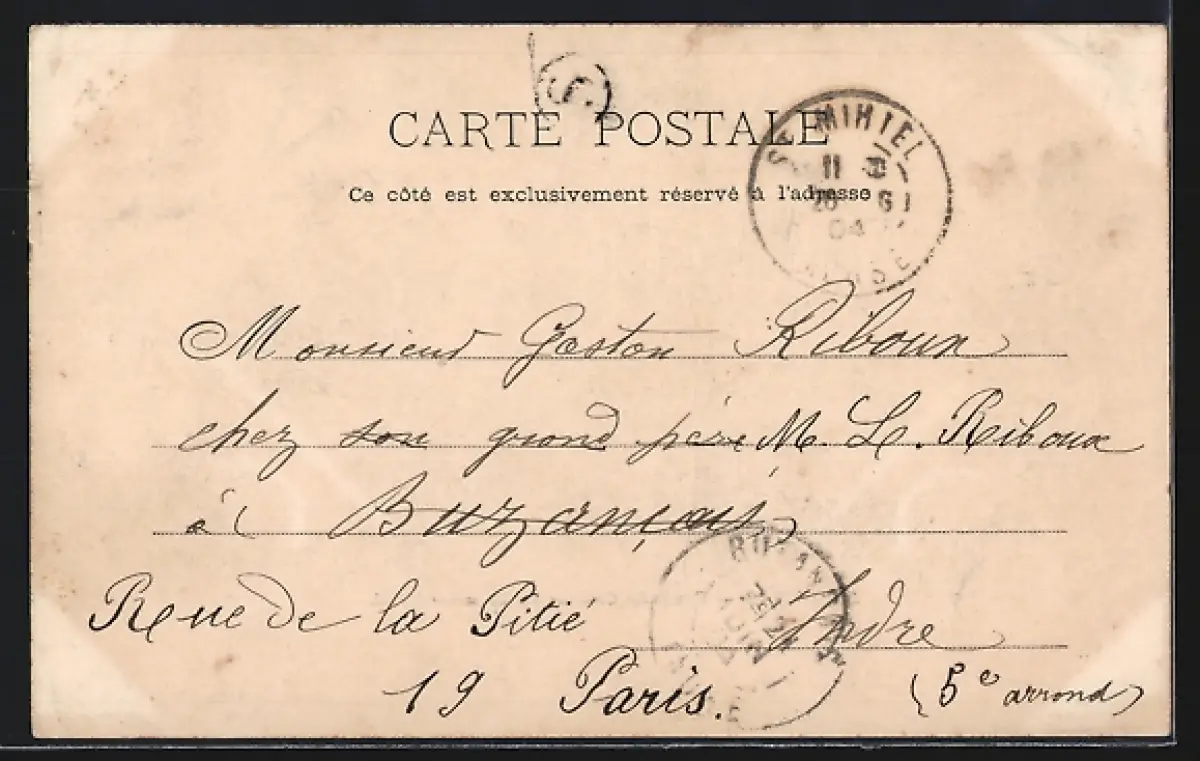 CARTE POSTALE
Ce côté est exclusivement réservé à l'adresse
ST MIHIEL
11
26
04
MEUSE
Monsieur Gaston Riboux
chez son grand père M. L. Riboux
à Buzançais
Indre
Rue de la Pitié
19 Paris.
(5e arrond)